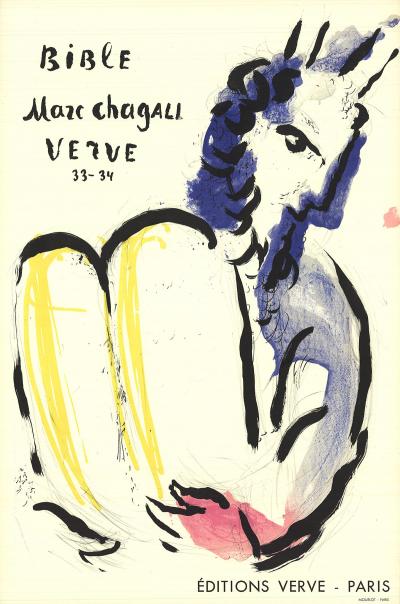 BiBle
Marc chagall
VERVE
33-34
ÉDITIONS VERVE - PARIS
MOURLOT - PARIS